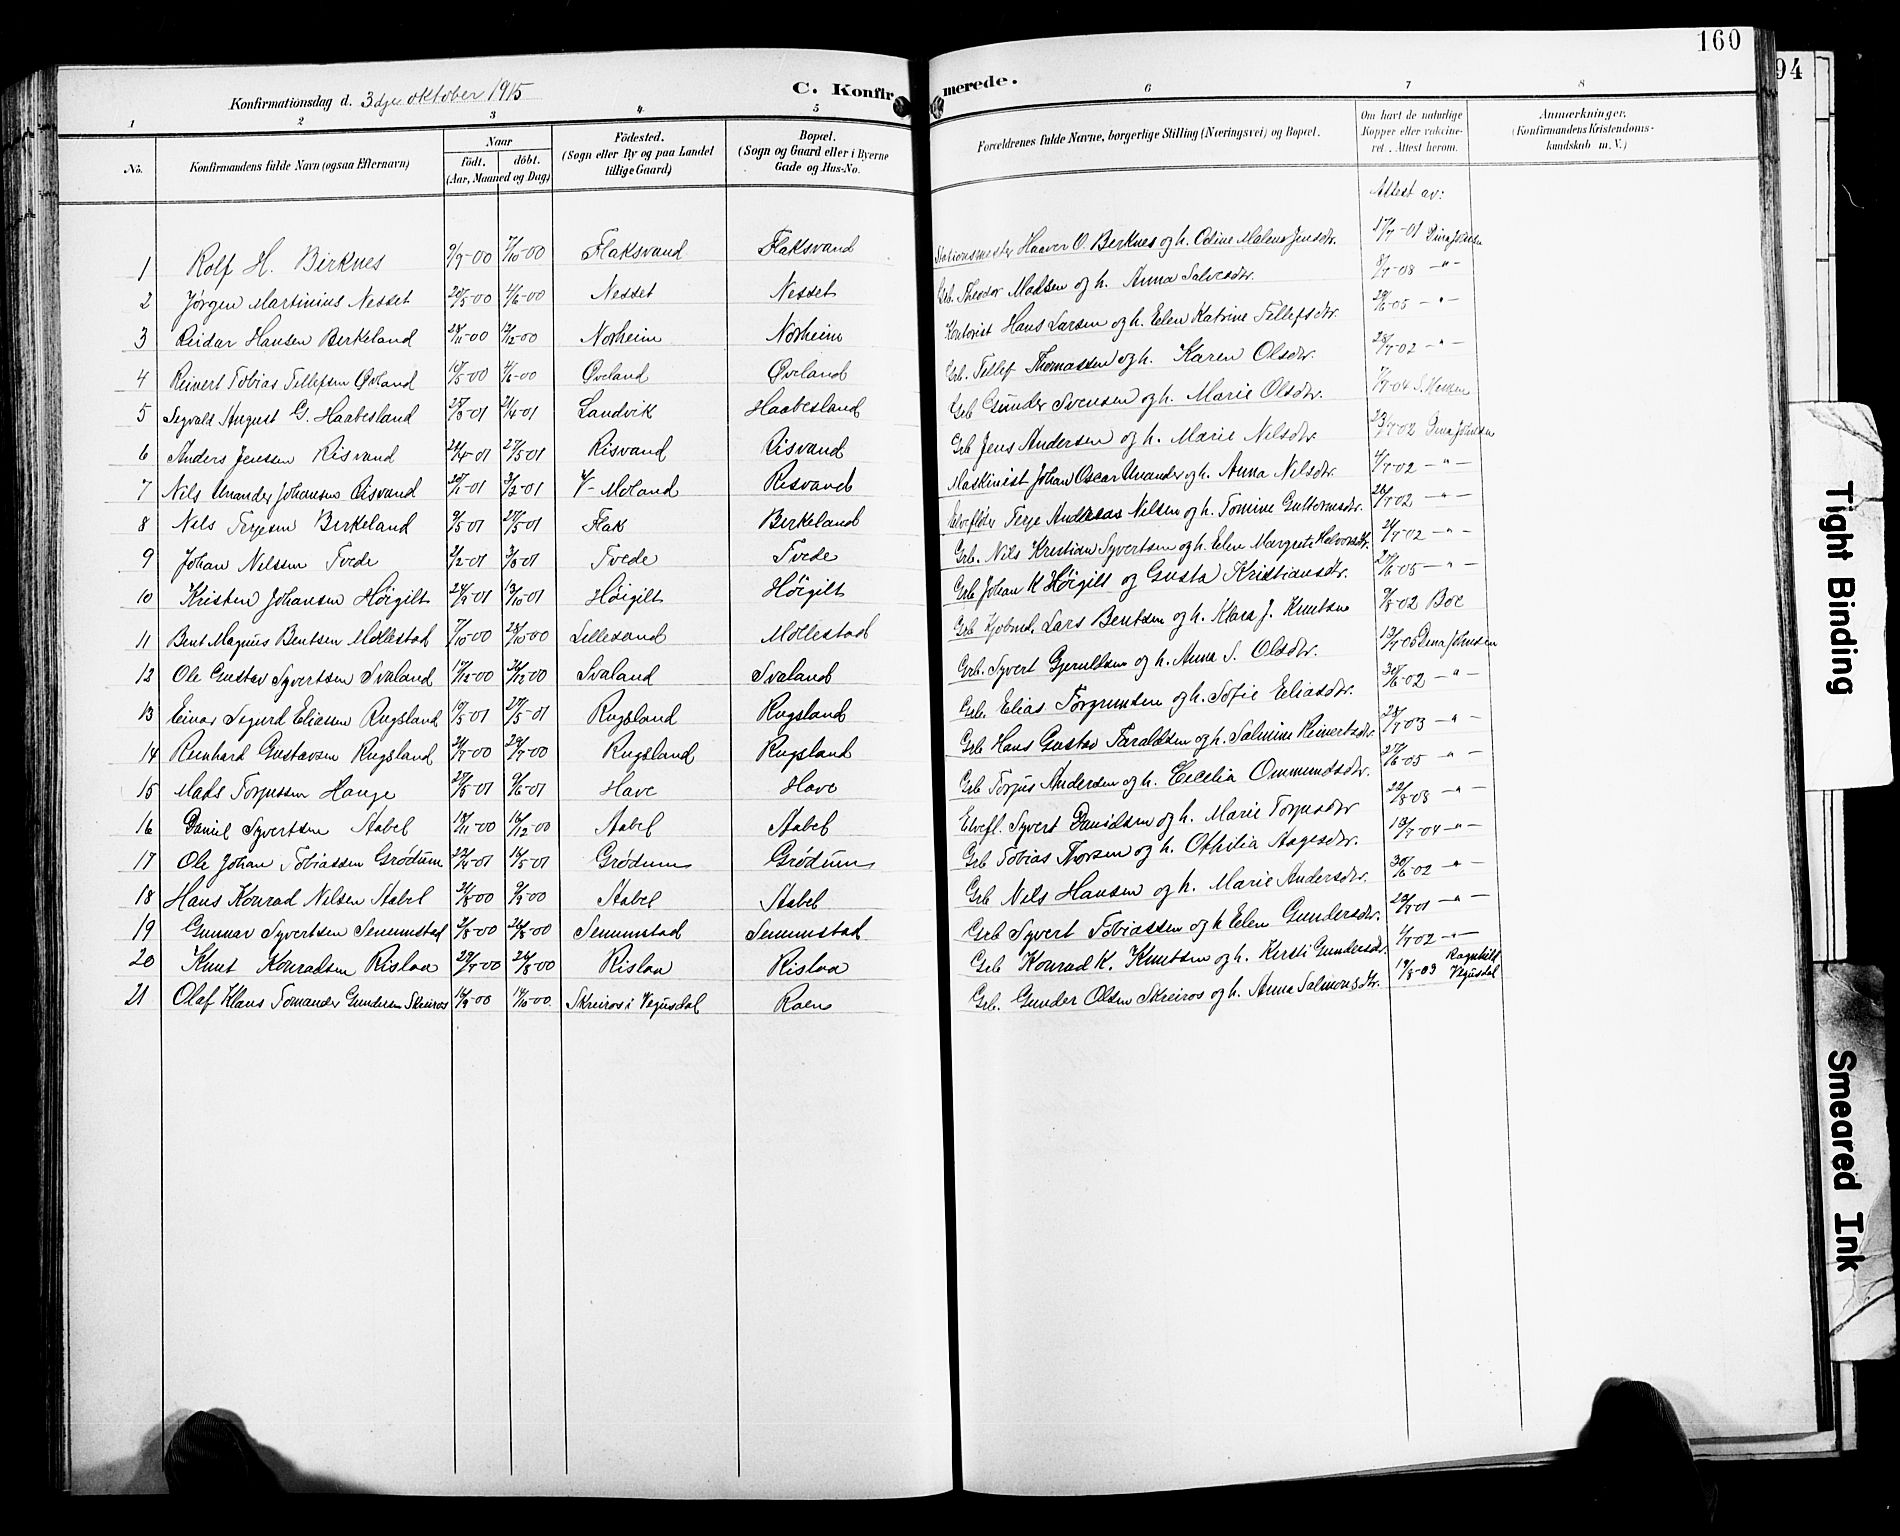 160
94
Konfirmationsdag d. 3dje oktober 1915
C. Konfir merede.
1 2 3 4 5 6 7 8
No. Konfirmandens fulde Navn (ogsaa Efternavn) Naar født. døbt. (Aar, Maaned og Dag) Födested. (Sogn eller By og paa Landet tillige Gaard) Bopæl. (Sogn og Gaard eller i Byerne Gade og Hus-No. Forældrenes fulde Navne, borgerlige Stilling (Næringsvei) og Bopæl. Om havt de naturlige Kopper eller vaksineret. Attest herom. Anmærkninger. (Konfirmandens Kristendomskundskab m. V.)
Attest av:
1 Rolf H. Birknes 9/9-00 7/10-00 Flaksvand Flaksvand Stationsmester Haaver O. Birknes og h. Odine Malene Jensdtr. 17/7-01 Dina Johnsen
2 Jørgen Martinius Nesset 20/5-00 4/6-00 Nesset Nesset Grb. Theodor Madsen og h. Anna Salvesdtr. 8/7-08 -"-
3 Reidar Hansen Birkeland 24/11-00 12/12-00 Norheim Norheim Kontorist Hans Larsen og h. Elen Katrine Tellefsdtr. 29/6-05 -"-
4 Reinert Tobias Tellefsen Øvland 14/5-00 4/6-00 Øveland Øveland Grb. Tellef Thomassen og h. Karen Olsdtr. 28/7-02 -"-
5 Segvald August G. Haabesland 25/3-01 21/4-01 Landvik Haabesland Grb Gunder Svensen og h. Marie Olsdtr. 7/7-04 S. Hansen
6 Anders Jenssen Risvand 24/4-01 27/5-01 Risvand Risvand Grb Jens Andersen og h. Marie Nilsdtr. 23/7-02 Dina Johnsen
7 Nils Unander Johansen Risvand 27/1-01 3/3-01 V-Moland Risvand Maskinist Johan Oscar Unander og h. Anna Nilsdtr. 4/7-02 -"-
8 Nels Terjesen Birkeland 9/5-01 27/5-01 Flak Birkeland Elvefløter Terje Andreas Nilsen og h. Tomine Guttormsdtr. 26/7-02 -"-
9 Johan Nilssen Tvede 2/2-01 3/3-01 Tvede Tvede Grb. Nils Kristian Syvertsen og h. Elen Margrete Halvorsdtr. 24/7-02 -"-
10 Kristen Johansen Høigilt 24/9-01 13/10-01 Høigilt Høigilt Grb Johan K Høigilt og Gusta Kristiansdtr. 27/6-05 -"-
11 Bent Magnus Bentsen Møllestad 7/10-00 28/10-00 Lillesand Møllestad Grb Kjøbmd. Lars Bentsen og h. Klara J. Knutsen 9/8-02 Boe
12 Ole Gustav Syvertsen Svaland 17/12-00 26/12-00 Svaland Svaland Grb. Syvert Gjerulfsen og h. Anna S. Olsdtr. 13/7-05 Dina Johnsen
13 Einar Segurd Eliassen Rugsland 10/5-01 27/5-01 Rugsland Rugsland Grb. Elias Torgrimsen og h. Sofie Eliasdtr. 30/6-02 -"-
14 Reinhard Gustavsen Rugsland 24/7-00 29/7-00 Rugsland Rugsland Grb Hans Gustav Taraldsen og h. Salmine Reinertsdtr. 28/7-03 -"-
15 Mads Torjussen Hauge 27/5-01 9/6-01 Have Have Grb Torjus Andersen og h. Cecelia Ommundsdtr. 27/6-05 -"-
16 Daniel Syvertsen Stabel 18/11-00 16/12-00 Stabel Stabel Elvefl. Syvert Danielsen og h. Marie Torjusdtr 22/8-03 -"-
17 Ole Johan Tobiassen Grødum 22/4-01 16/5-01 Grødum Grødum Grb Tobias Thorsen og h. Othilia Aagesdtr. 18/7-04 -"-
18 Hans Konrad Nilsen Stabel 24/8-00 9/9-00 Stabel Stabel Grb Nils Hansen og h. Marie Andersdtr. 30/6-02 -"-
19 Gunnar Syvertsen Senumstad 3/8-00 26/8-00 Senumstad Senumstad Grb Syvert Tobiassen og h Elen Gundersdtr. 29/7-01 -"-
20 Knut Konradsen Rislaa 29/7-00 26/8-00 Rislaa Rislaa Grb Konrad K. Knutsen og h. Kersti Gundersdtr. 1/7-02 -"-
21 Olaf Klaus Tomander Gundersen Skreiros 16/9-00 14/10-00 Skreiros i Vegusdal Roen Grb. Gunder Olsen Skreiros og h. Anna Salmonsdtr. 19/8-03 Ragnhild Vegusdal
Tight Binding
Smeared Ink